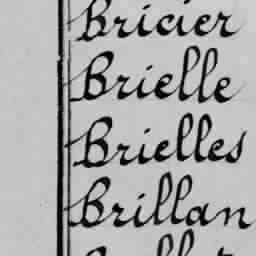 Bricier
Brielle
Brielles
Brillan